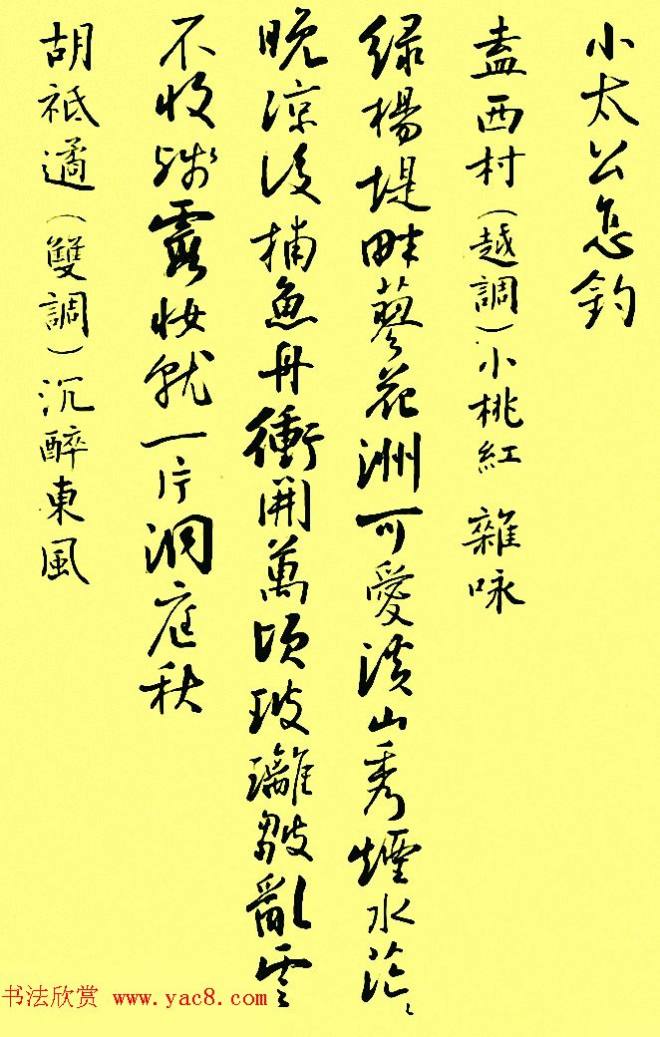 小太公怎釣
盍西村（越調）小桃紅 雜咏
緑楊堤畔蓼花洲可愛溪山秀煙水茫〻
晚涼後捕魚舟衝開萬頃玻璃皺亂雲
不收殘霞妝就一片洞庭秋
胡祗遹（雙調）沉醉東風
书法欣赏 www.yac8.com